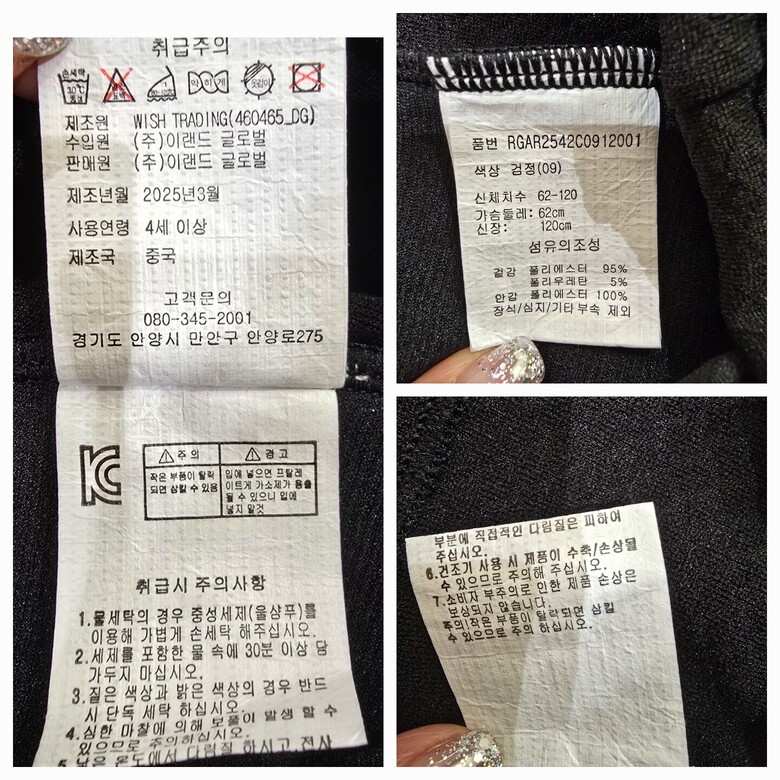 취급주의
손세탁
30℃
중성
표백
80~120℃
약하게
옷걸이
제조원 WISH TRADING(460465_DG)
수입원 (주)이랜드 글로벌
판매원 (주)이랜드 글로벌
제조년월 2025년3월
사용연령 4세 이상
제조국 중국
고객문의
080-345-2001
경기도 안양시 만안구 안양로275
주의
작은 부품이 탈락
되면 삼킬 수 있음
경고
입에 넣으면 프탈레
이트계 가소제가 용출
될 수 있으니 입에
넣지 말것
취급시 주의사항
1.물세탁의 경우 중성세제(울샴푸)를
이용해 가볍게 손세탁 해주십시오.
2.세제를 포함한 물 속에 30분 이상 담
가두지 마십시오.
3.짙은 색상과 밝은 색상의 경우 반드
시 단독 세탁 하십시오.
4.심한 마찰에 의해 보풀이 발생 할 수
있으므로 주의하십시오.
5.낮은 온도에서 다림질 하시고, 전사
품번 RGAR2542C0912001
색상 검정(09)
신체치수 62-120
가슴둘레: 62cm
신장: 120cm
섬유의조성
겉감 폴리에스터 95%
폴리우레탄 5%
안감 폴리에스터 100%
장식/심지/기타부속 제외
부분에 직접적인 다림질은 피하여
주십시오.
6.건조기 사용 시 제품이 수축/손상될
수 있으므로 주의해 주십시오.
7.소비자 부주의로 인한 제품 손상은
보상되지 않습니다.
주의!작은 부품이 탈락되면 삼킬
수 있으므로 주의 하십시오.